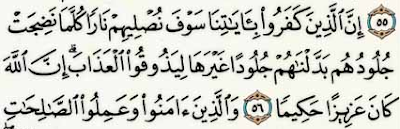 ٥٥ إِنَّ ٱلَّذِينَ كَفَرُوا۟ بِـَٔايَـٰتِنَا سَوْفَ نُصْلِيهِمْ نَارًا كُلَّمَا نَضِجَتْ
جُلُودُهُم بَدَّلْنَـٰهُمْ جُلُودًا غَيْرَهَا لِيَذُوقُوا۟ ٱلْعَذَابَ ۗ إِنَّ ٱللَّهَ
كَانَ عَزِيزًا حَكِيمًا ٥٦ وَٱلَّذِينَ ءَامَنُوا۟ وَعَمِلُوا۟ ٱلصَّـٰلِحَـٰتِ